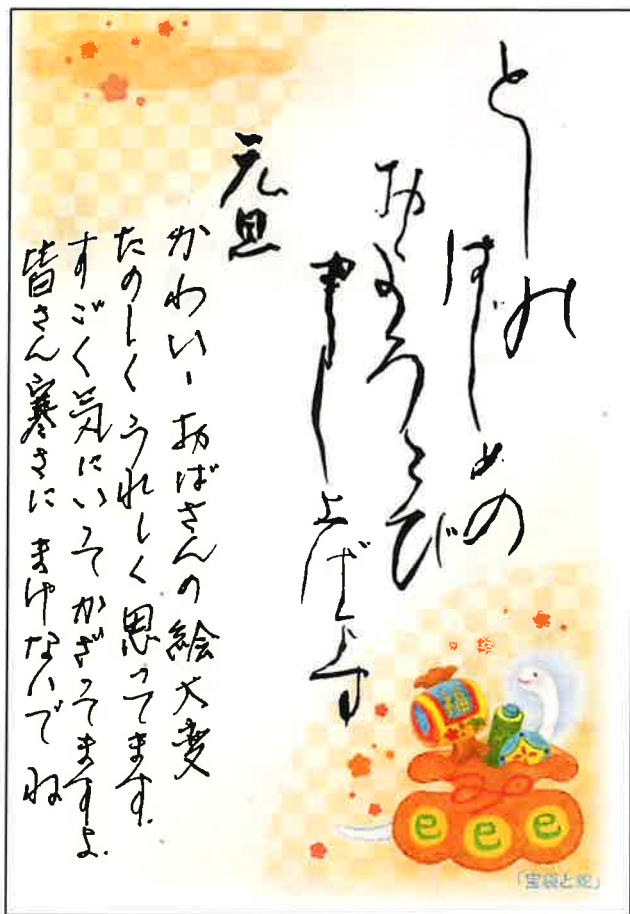 としの
はじめの
およろこび
申し上げます
元旦
かわいーおばさんの絵大変
たのしくうれしく思ってます.
すごく気にいってかざってますよ.
皆さん寒さにまけないでね
福
巳巳巳
「宝袋と蛇」